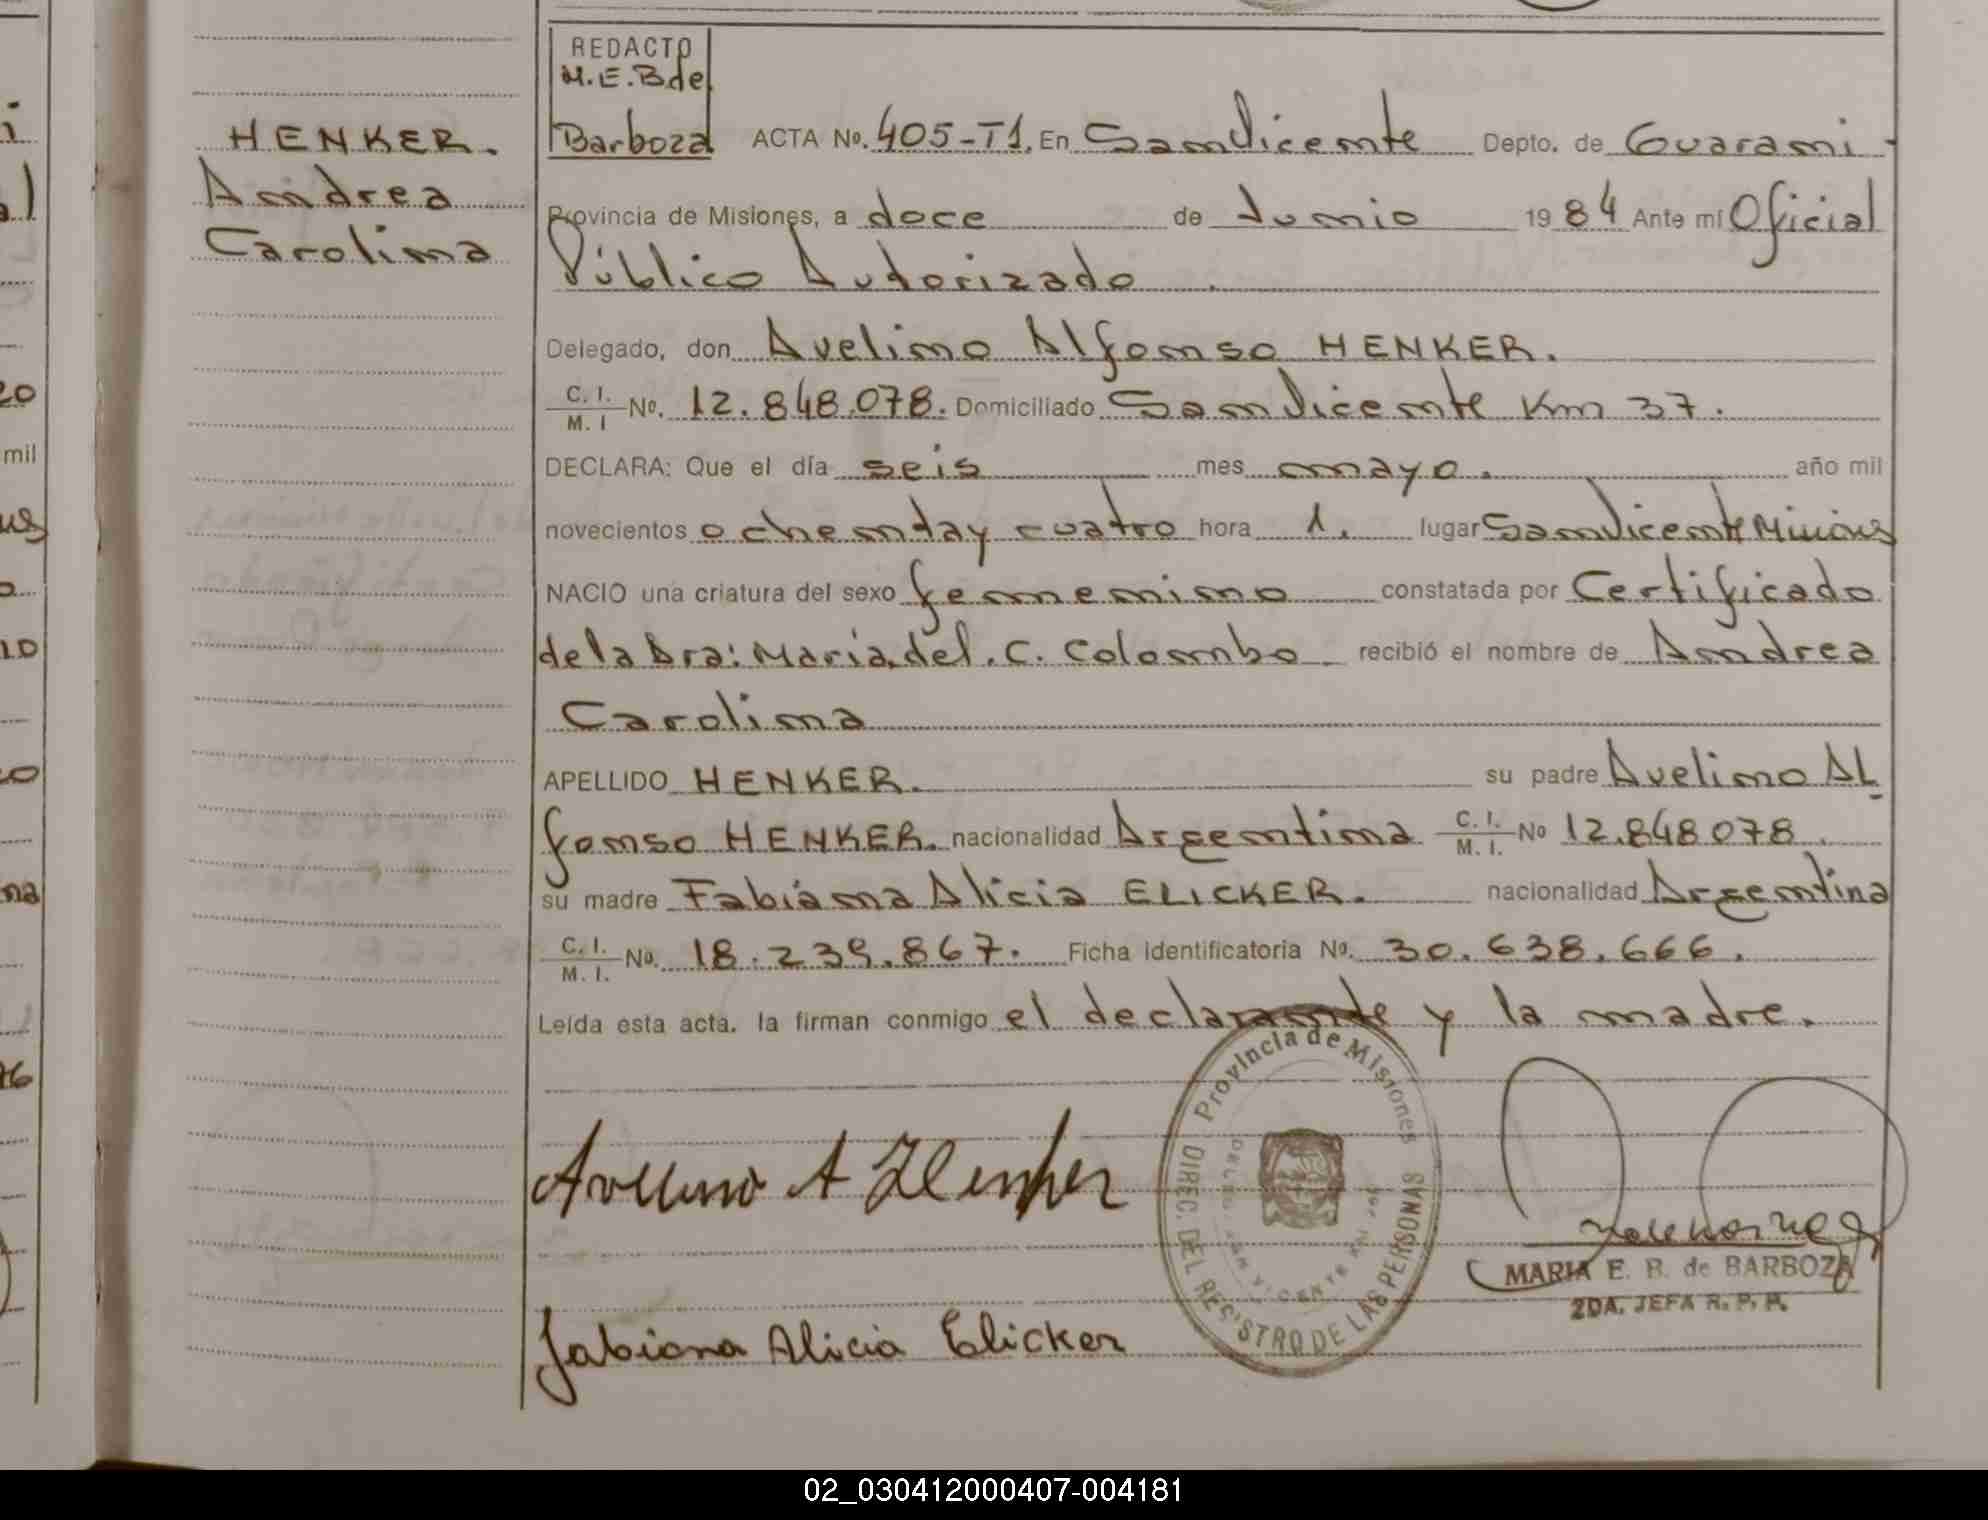 REDACTO
M.E.B de
Barboza
HENKER.
Andrea
Carolina
ACTA No. 405-T1. En San Vicente Depto. de Guarani
Provincia de Misiones, a doce de Junio 1984 Ante mí Oficial
Público Autorizado
Delegado, don Avelino Alfonso HENKER.
C. I. / M. I No. 12.848.078. Domiciliado San Vicente Km 37.
DECLARA: Que el día seis mes mayo. año mil
novecientos ochentay cuatro hora 1. lugar San Vicente Misiones
NACIO una criatura del sexo femenino constatada por Certificado
de la Dra: Maria del. C. Colombo recibió el nombre de Andrea
Carolina
APELLIDO HENKER. su padre Avelino Al
fonso HENKER. nacionalidad Argentina C. I. / M. I. No 12.848.078.
su madre Fabiana Alicia ELICKER. nacionalidad Argentina
C. I. / M. I. No. 18.239.867. Ficha identificatoria No. 30.638.666.
Leída esta acta, la firman conmigo el declarante y la madre.
Avelino A Henker
Provincia de Misiones
DIREC. DEL REGISTRO DE LAS PERSONAS
SAN VICENTE
MARIA E. B. de BARBOZA
2DA. JEFA R. P. P.
Fabiana Alicia Elicker
mil
02_030412000407-004181